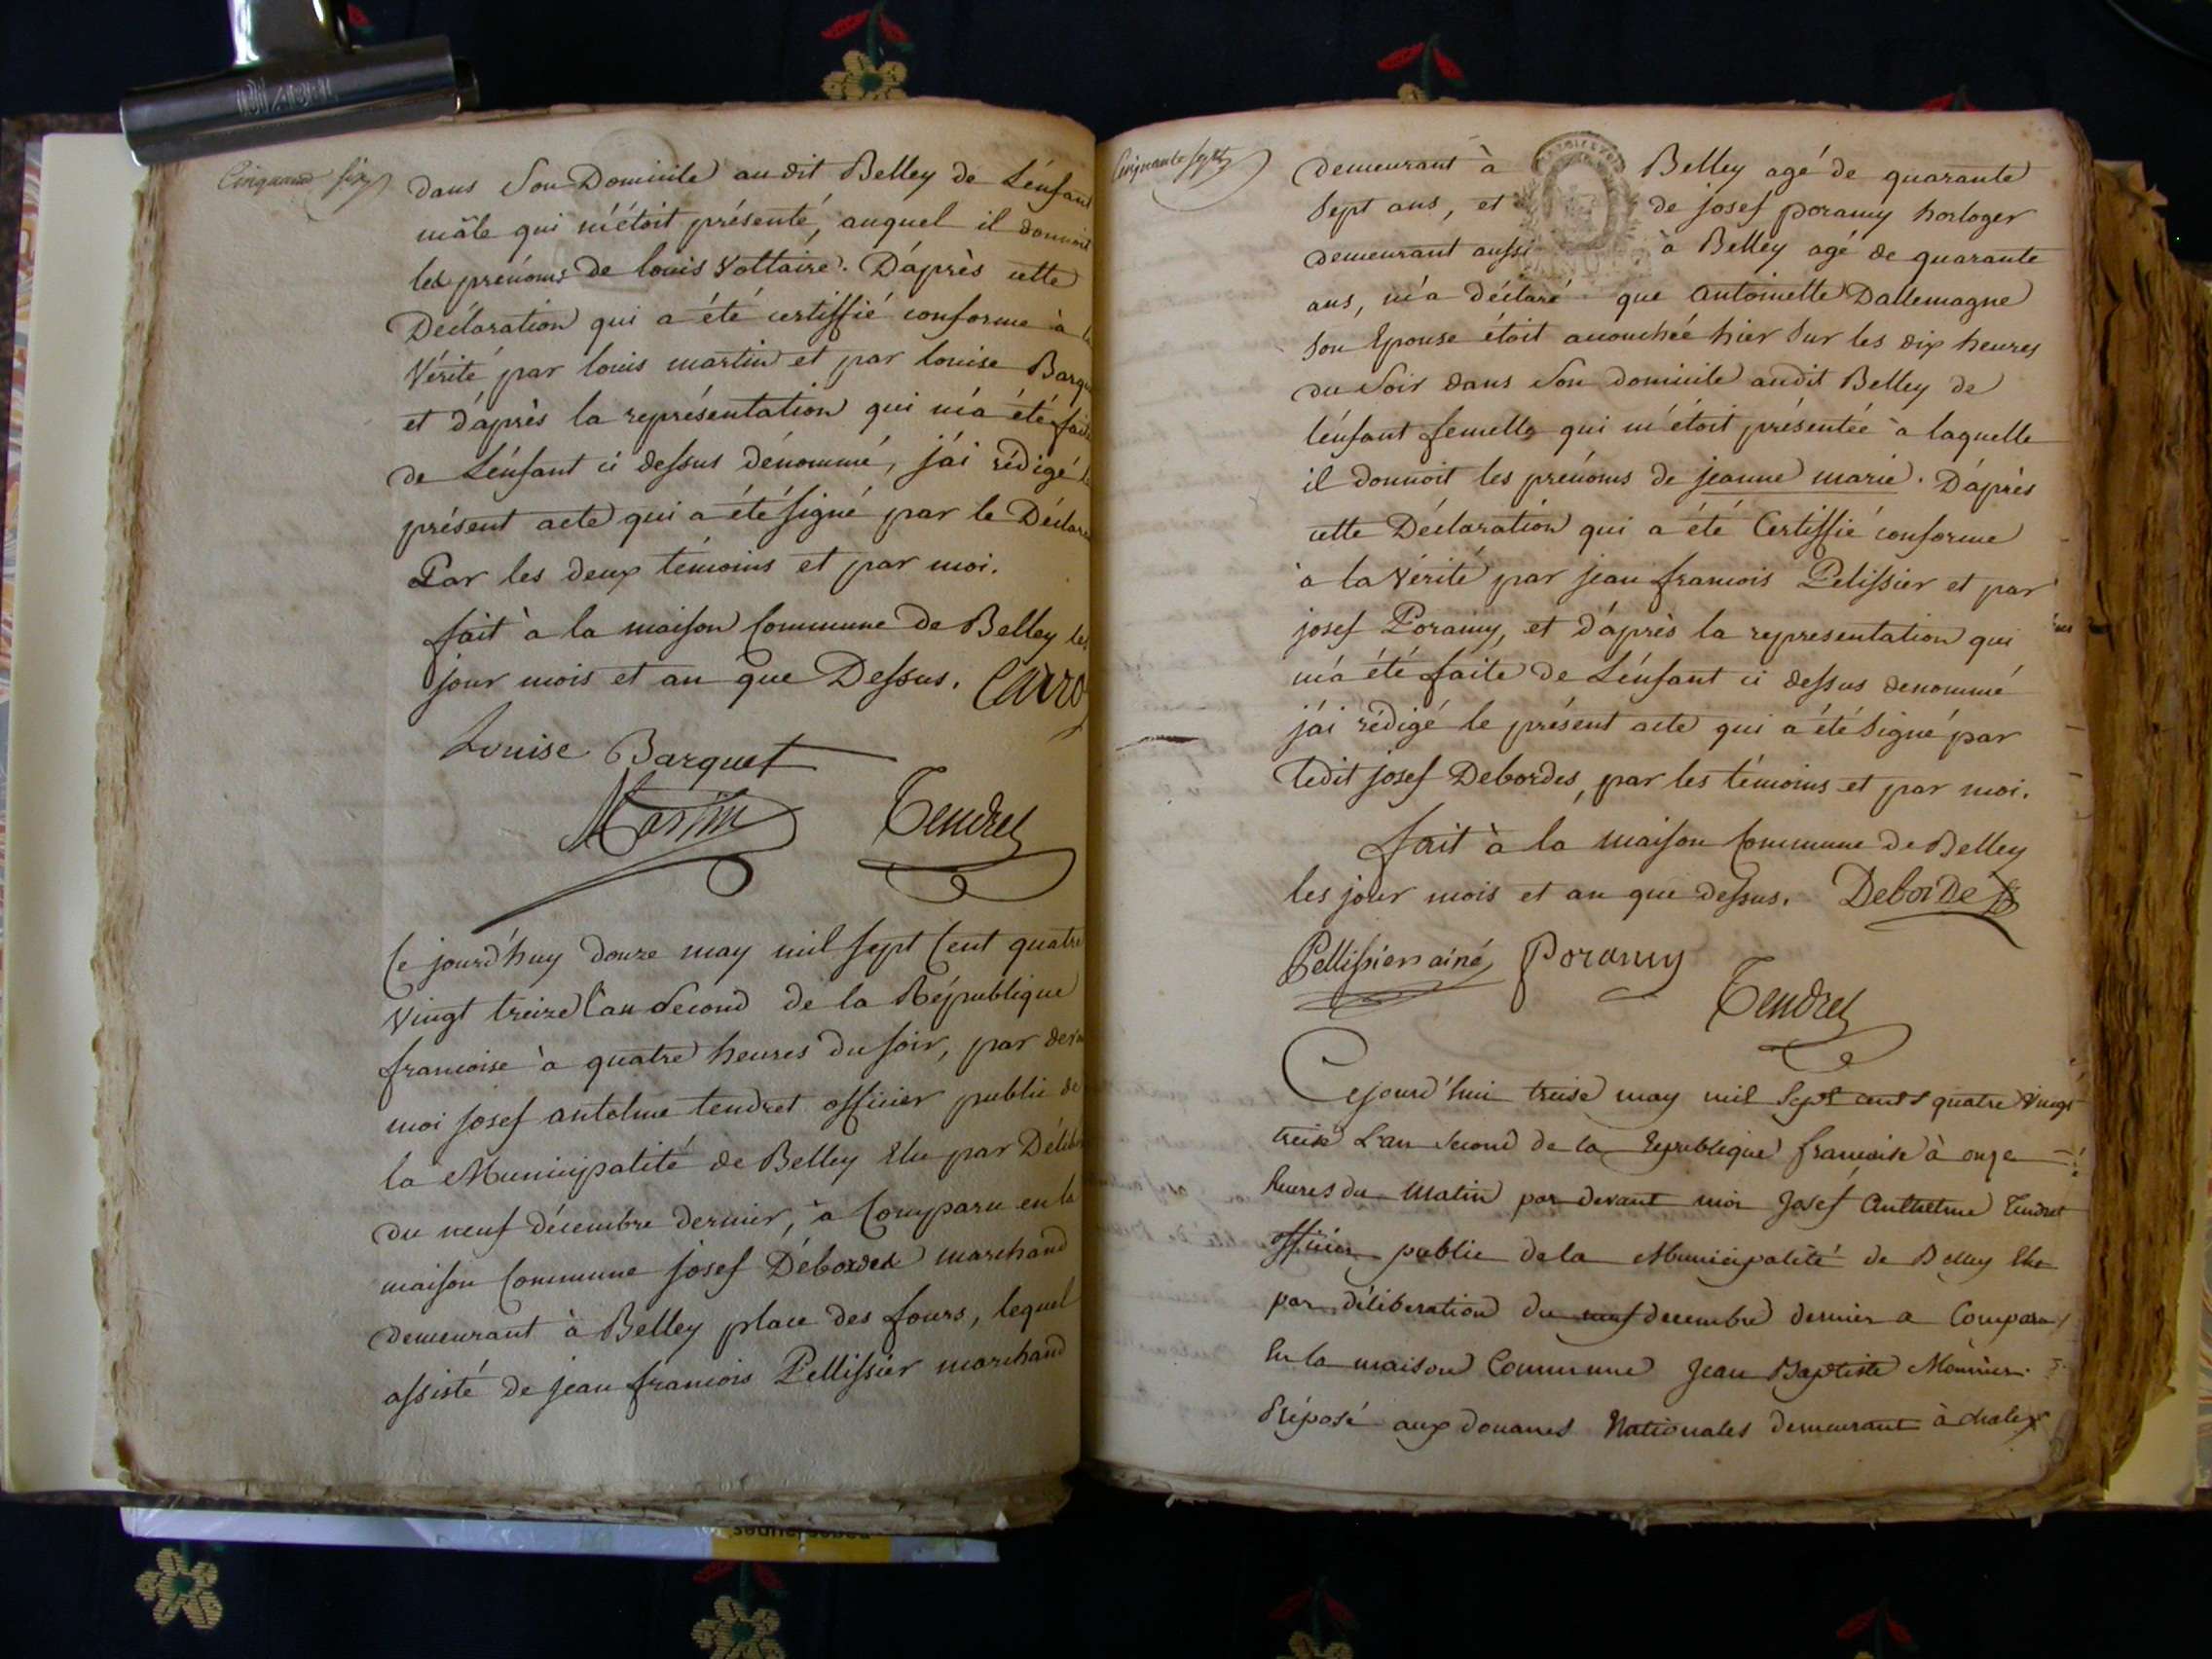 Cinquante six
dans Son Domicile au dit Belley de L'énfant
mâle qui m'étoit présenté, auquel il donnoit
les prénoms de louis Voltaire. D'áprès cette
Déclaration qui a été certiffié conforme à la
Vérité par louis martin et par louise Barquet
et d'áprès la représentation qui m'a été faite
de L'énfant ci dessus dénommé, j'ái rédigé le
présent acte qui a été signé par le Déclara
Par les deux témoins et par moi.
fait à la maison Commune de Belley les
jour mois et an que Dessus. Carro
Louise Barquet
Martin Tendret
Ce jourd'huy douze may mil sept Cent quatre
Vingt treize L'an Second de la République
francoise à quatre heures du soir, par devant
moi josef antelme tendret officier public de
la Municipalité de Belley Elu par Délib
du neuf décembre dernier, a Comparu en la
maison Commune josef Débordes marchand
demeurant à Belley place des fours, lequel
assisté de jean francois Pellissier marchand
Cinquante sept
demeurant à Belley agé de quarante
Sept ans, et de josef poramy horloger
demeurant aussi à Belley agé de quarante
ans, m'a déclaré que antoinette Dallemagne
Son Epouse étoit accouchée hier Sur les dix heures
du Soir dans Son domicile audit Belley de
l'énfant femelle qui m'étoit présentée à laquelle
il donnoit les prénoms de jeanne marie. D'áprès
cette Déclaration qui a été Certiffié conforme
à la Vérité par jean francois Pelissier et par
josef Poramy, et d'áprès la representation qui
m'a été faite de L'énfant ci dessus denommé
j'ái rédigé le présent acte qui a été signé par
ledit josef Debordes, par les témoins et par moi.
fait à la maison Commune de Belley
les jour mois et an que dessus. Debordes
Pellissier ainé Poramy
Tendret
Cejourd'hui treise may mil Sept cents quatre Vingt
treise L'an Second de la Republique francoise à onze
heures du Matin par devant moi Josef Anthelme Tendret
officier public de la Municipalité de Belley Elu
par déliberation du neuf decembre dernier a Comparu
En la maison Commune Jean Baptiste Monnier
Préposé aux douanes Nationales demeurant à